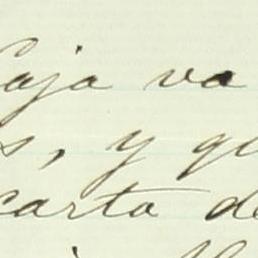 Caja va
s, y qu
carta de